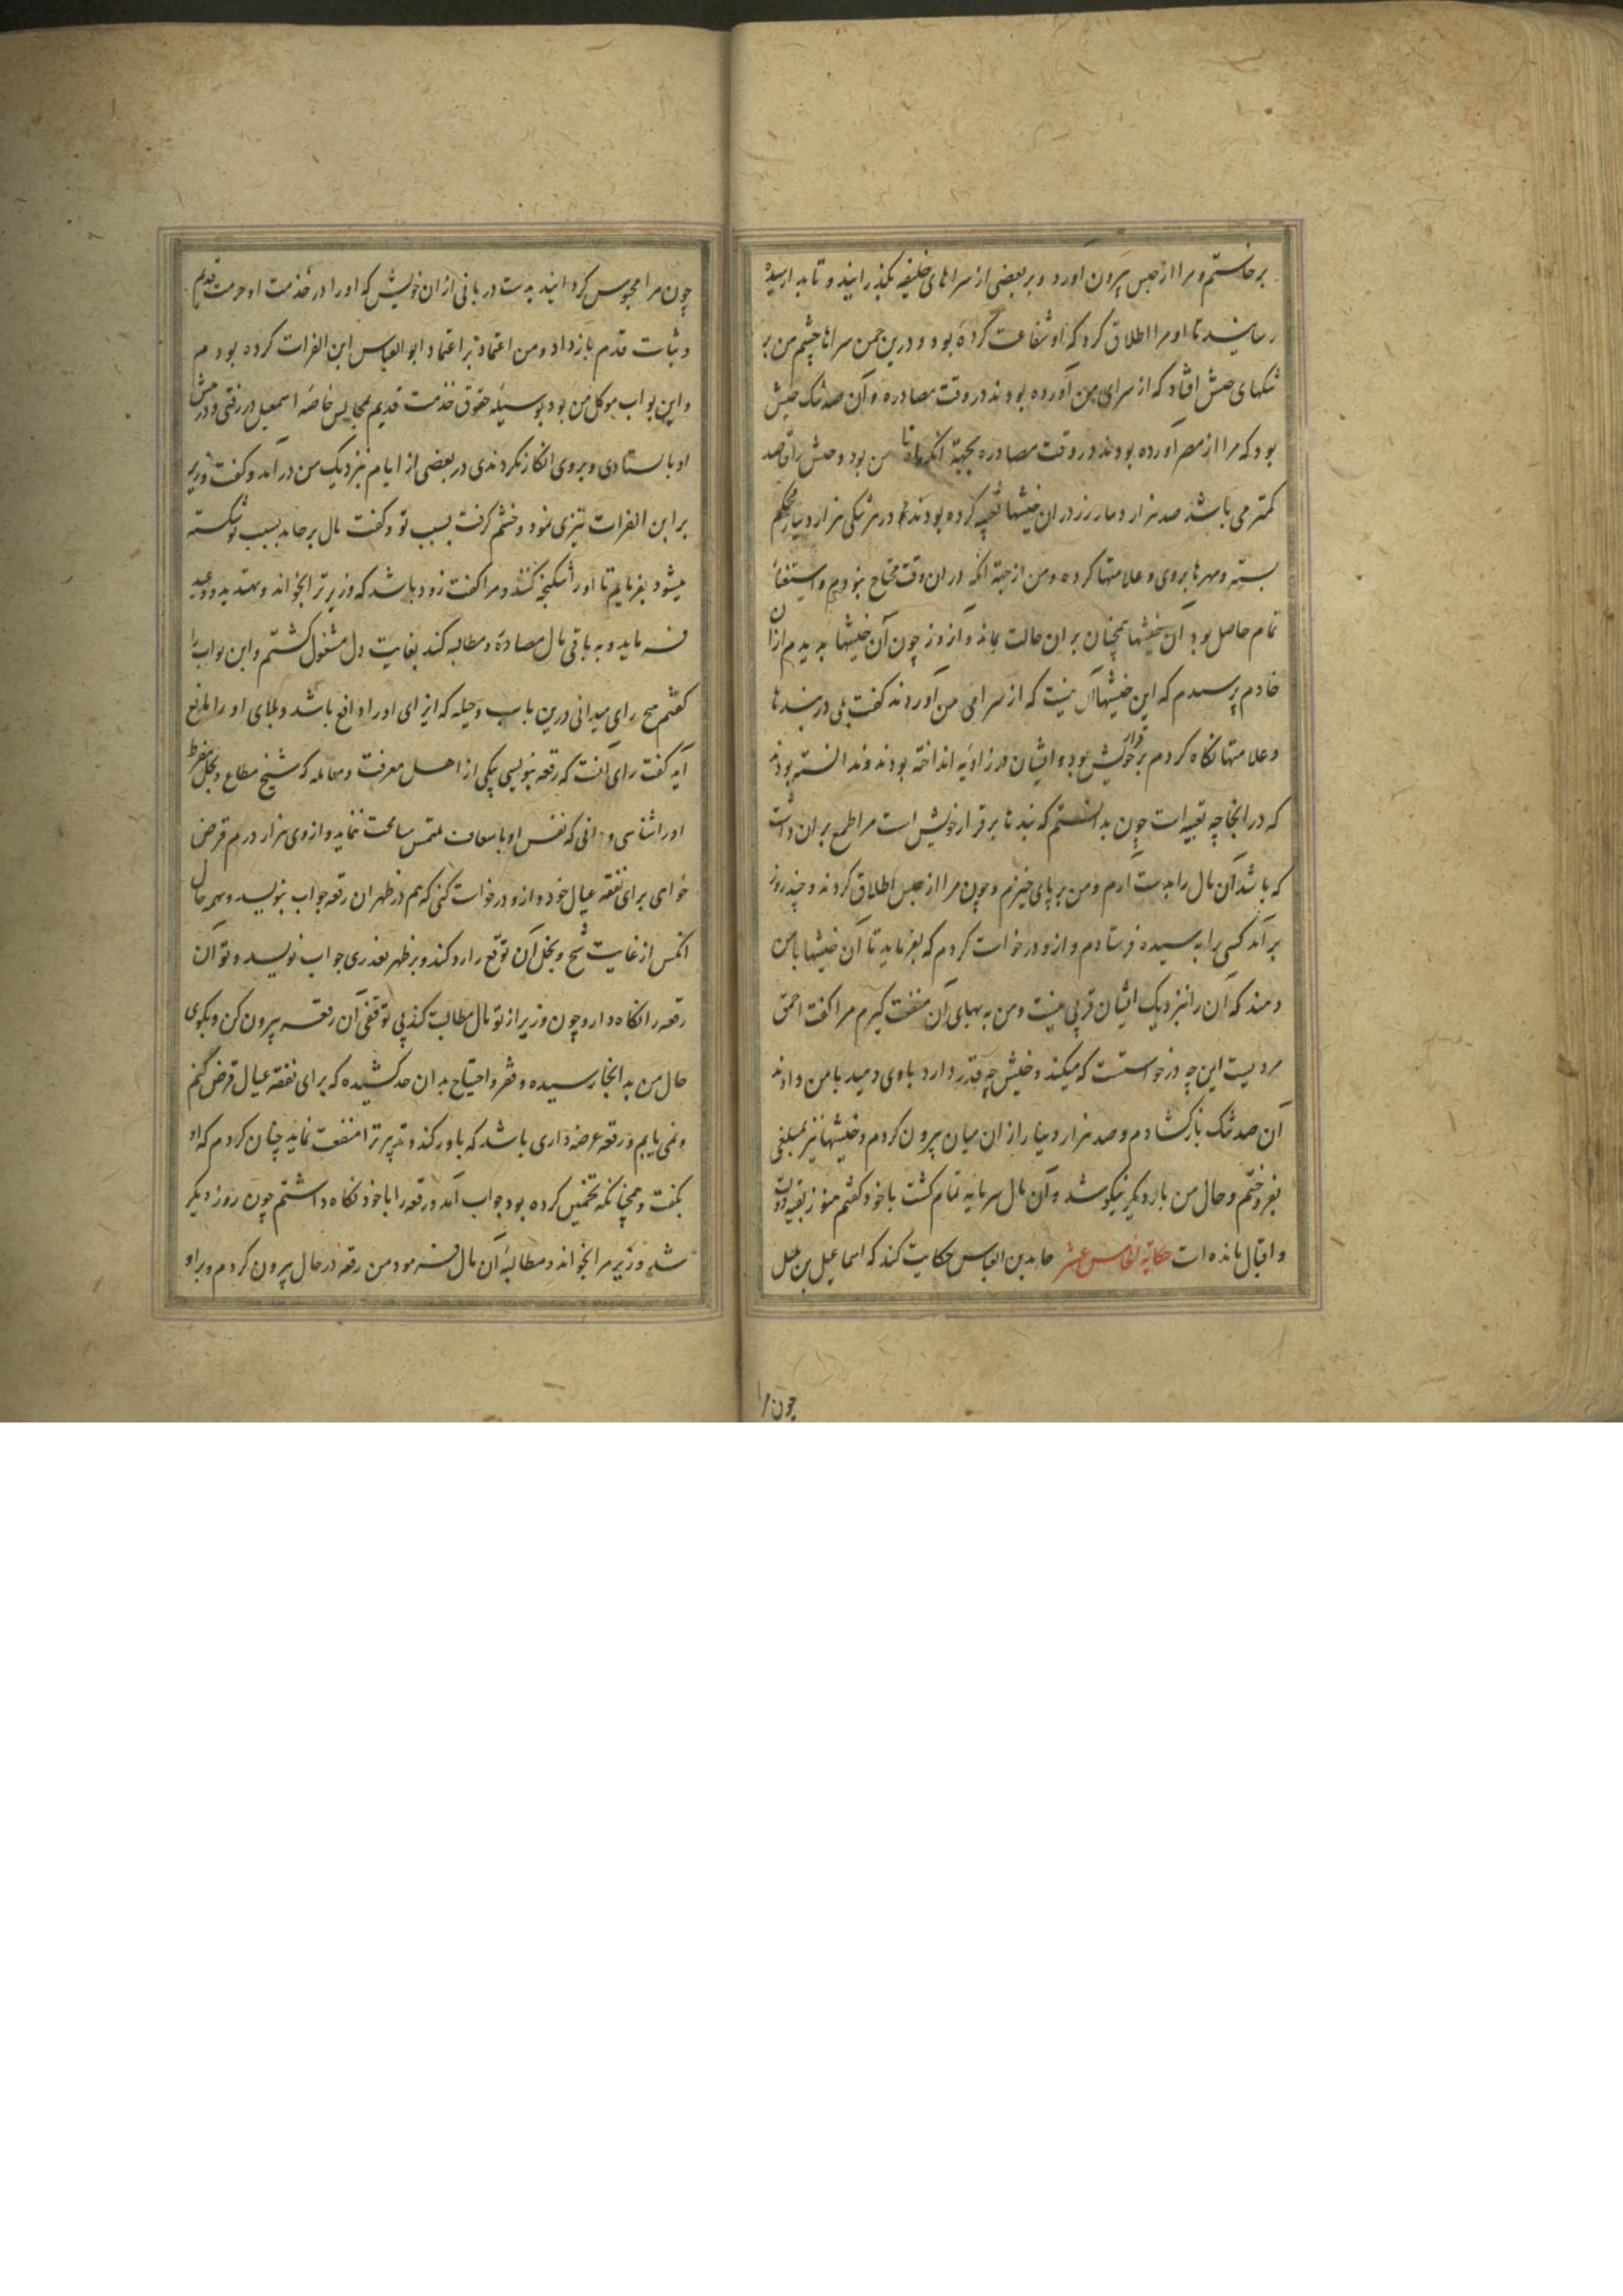 برخاستم و مرا از حبس بیرون آورد و بر بعضی از سراهای خلیفه بگذرانید و تا بدار سیده
رسانید تا او مرا اطلاق کرد که او شفاعت کرده بود و درین چمن سراها چشم من بر
تنگهای خیش افتاد که از سرای من آورده بودند در وقت مصادره و آن صد تنگ خیش
بود که مرا از مصر آورده بودند در وقت مصادره بجهة آنکه من بود و خیش رافصد
کمتر می باشد صد هزار دینار زر در آن خیشها تعبیه کرده بودند در هر تنگی هزار دینار محکم
بسته و مهرها بروی و علامتها کرده و من از جهة آنکه در آن وقت محتاج نبودم و استغنای
تمام حاصل بود آن خیشها همچنان بر آن حالت بماند و آن روز چون آن خیشها بدیدم از آن
خادم پرسیدم که این خیشها آن نیست که از سرای من آوردند گفت بلی در بندها
و علامتها نگاه کردم بر قرار خویش بود و ایشان در زاویه انداخته بودند و ندانسته بودند
که در آنجا چه تعبیه است چون بدانستم که بندها بر قرار خویش است مرا طمع بر آن داشت
که باشد آن مال را بدست آرم و من بر پای خیزم و چون مرا از حبس اطلاق کردند و چند روز
بر آمد کسی را به سیده فرستادم و ازو درخواست کردم که بفرماید تا آن خیشها با من
دهند که آن را نزدیک ایشان قربی نیست و من به بهای آن منفعت گیرم مرا گفت احمق
مردیست این چه درخواستست که میکند و خیش چه قدر دارد باوی دهید با من دادند
آن صد تنگ باز گشادم و صد هزار دینار از آن میان بیرون کردم و خیشها نیز بمبلغی
بفروختم و حال من بار دیگر نیکو شد و آن مال سرمایه تمام گشت با خود گفتم هنوز بقیه دولت
و اقبال مانده است حکایة الخامس عشر حامد بن العباس حکایت کند که اسماعیل بن بلبل
چون مرا
چون مرا محبوس گردانید بدست دربانی از آن خویش که او را در خدمت او حرمت قدیم
و ثبات قدم بازداد و من اعتماد بر اعتماد ابو العباس ابن الفرات کرده بودم
و این بواب موکل من بود بوسیله حقوق خدمت قدیم بمجالس خاصه اسمعیل در رفتی و در پیش
او بایستادی و بروی انکار نکردندی در بعضی از ایام نزدیک من در آمد و گفت وزیر
بر ابن الفرات تیزی نمود و خشم گرفت بسبب تو و گفت مال بر حامد بسبب تو شکسته
میشود بفرمایم تا او را شکنجه کنند و مرا گفت زود باشد که وزیر ترا بخواند و بتهدید و وعید
فرماید و به باقی مال مصادره و مطالبه کند بغایت دل مشغول گشتم و این بواب را
گفتم هیچ رای میدانی درین باب و حیله که ایزای او را دافع باشد و بلای او را مانع
آید گفت رای آنست که رقعه بنویسی بیکی از اهل معرفت و معامله که شیخ مطاع و بخل مفرط
او را شناسی و دانی که نفس او باسعاف ملتمس سامحت ننماید و از وی هزار درم قرض
خواهی برای نفقه عیال خود و ازو درخواست کنی که هم در ظهر آن رقعه جواب بنویسد و بهمه حال
آنکس از غایت شح و بخل آن توقع را رد کند و بر ظهر بعذری جواب نویسد و تو آن
رقعه را نگاه دار و چون وزیر از تو مال مطالبت کند بی توقفی آن رقعه بیرون کن و بگوی
حال من بد انجا رسیده و فقر و احتیاج بدان حد کشیده که برای نفقه عیال قرض کنم
و نمی یابم و رقعه عرضه داری باشد که باور کند و تدبیر ترا منفعت نماید چنان کردم که او
بگفت و همچنانکه تخمین کرده بود جواب آمد و رقعه را با خود نگاه داشتم چون روز دیگر
شد وزیر مرا بخواند و مطالبه آن مال فرمود من رقعه در حال بیرون کردم و بر او